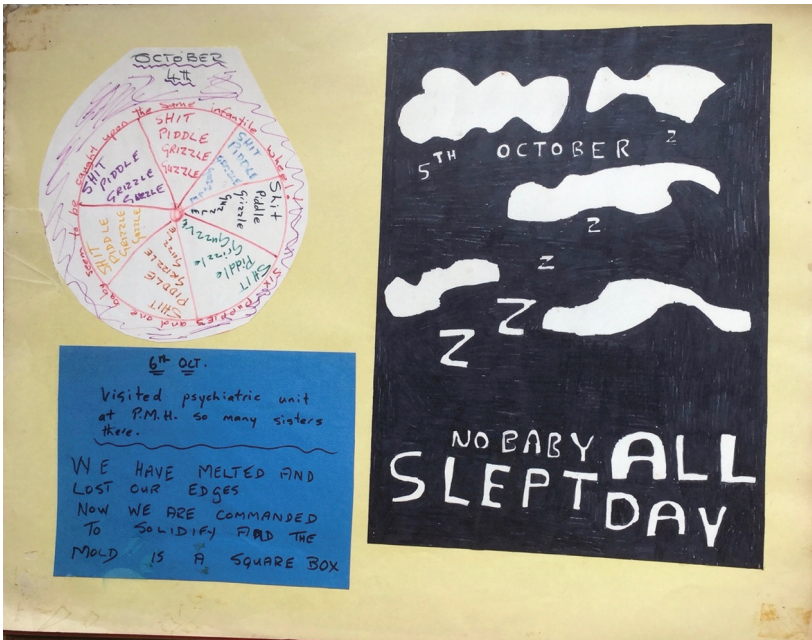 OCTOBER
4TH
Six puppies and one baby seem to be caught upon the same infantile wheel!
SHIT
PIDDLE
GRIZZLE
GUZZLE
SHIT
PIDDLE
GRIZZLE
GUZZLE
Shit
Piddle
Grizzle
GUZZLE
SHIT
Piddle
Grizzle
GuzzLe
SHIT
PIDDLE
GRIZZLE
GUZZLE
SHIT
PIDDLE
GRIZZLE
GUZZLE
SHIT
PIDDLE
GRIZZLE
GUZZLE
6TH OCT.
Visited psychiatric unit
at P.M.H. so many sisters
there.
WE HAVE MELTED AND
LOST OUR EDGES
NOW WE ARE COMMANDED
TO SOLIDIFY AND THE
MOLD IS A SQUARE BOX
Z
5TH OCTOBER
Z
Z
Z
Z
NO BABY ALL
SLEPT DAY